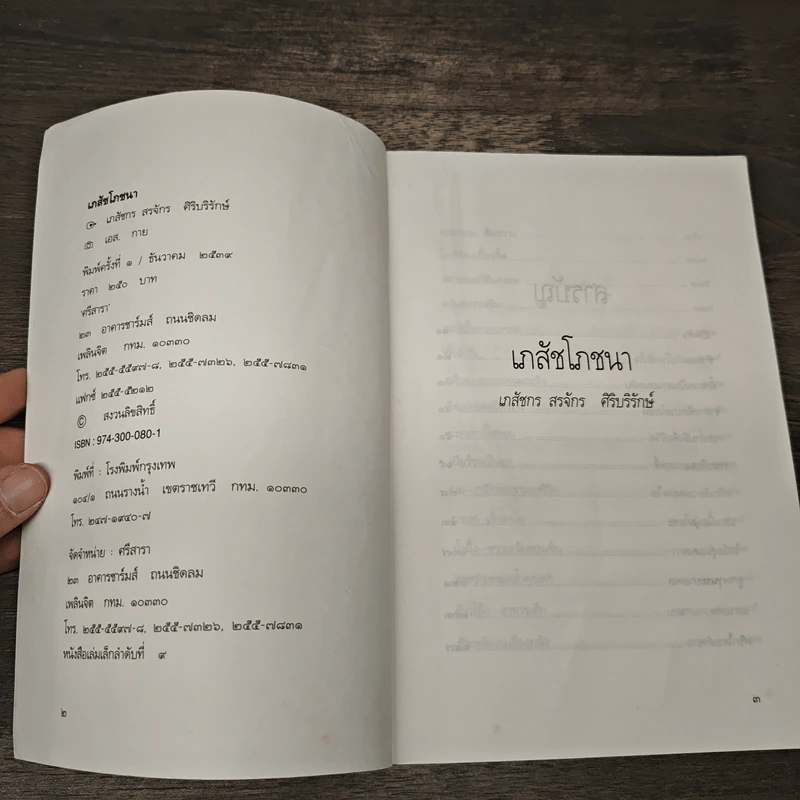 เภสัชโภชนา
เภสัชกร สรจักร ศิริบริรักษ์
เอส. กาย
พิมพ์ครั้งที่ ๑ / ธันวาคม ๒๕๓๙
ราคา ๒๕๐ บาท
'ศรีสารา'
๒๓ อาคารชาร์มส์ ถนนชิดลม
เพลินจิต กทม. ๑๐๓๓๐
โทร. ๒๕๕-๕๕๙๗-๘, ๒๕๕-๗๓๒๖, ๒๕๕-๗๘๓๑
แฟกซ์ ๒๕๕-๕๒๑๒
© สงวนลิขสิทธิ์
ISBN : 974-300-080-1
พิมพ์ที่ : โรงพิมพ์กรุงเทพ
๑๐๔/๑ ถนนรางน้ำ เขตราชเทวี กทม. ๑๐๓๓๐
โทร. ๒๔๗-๑๙๔๐-๗
จัดจำหน่าย : ศรีสารา
๒๓ อาคารชาร์มส์ ถนนชิดลม
เพลินจิต กทม. ๑๐๓๓๐
โทร. ๒๕๕-๕๕๙๗-๘, ๒๕๕-๗๓๒๖, ๒๕๕-๗๘๓๑
หนังสือเล่มเล็กลำดับที่ ๙
๒
เภสัชโภชนา
เภสัชกร สรจักร ศิริบริรักษ์
๓